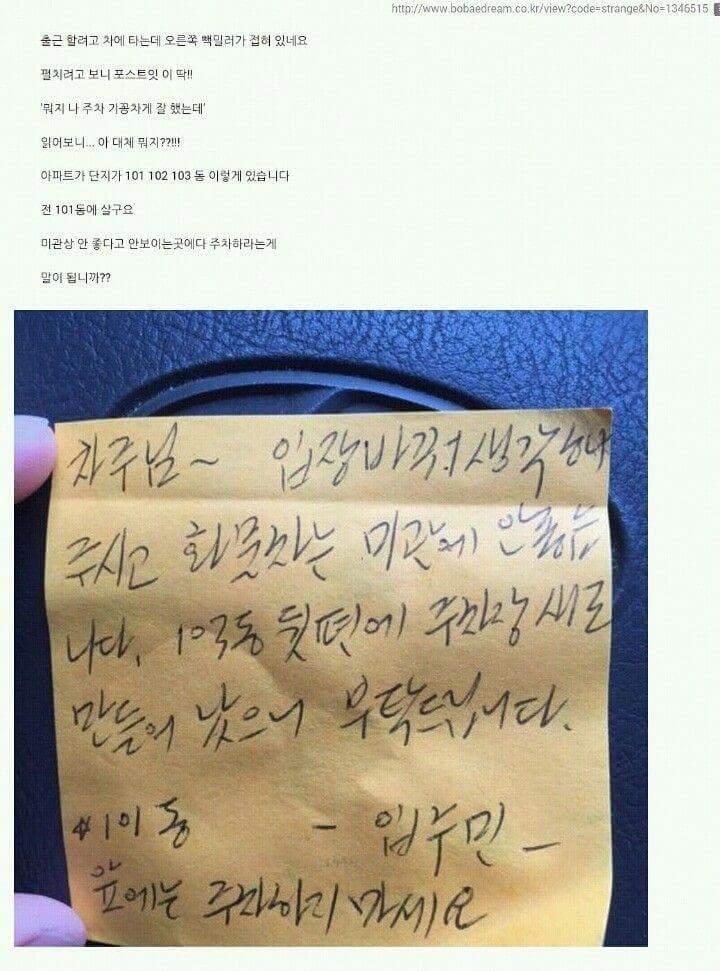 http://www.bobaedream.co.kr/view?code=strange&No=1346515
출근 할려고 차에 타는데 오른쪽 빽밀러가 접혀 있네요
펼치려고 보니 포스트잇 이 딱!!
'뭐지 나 주차 기꽁차게 잘 했는데'
읽어보니... 아 대체 뭐지??!!!
아파트가 단지가 101 102 103 동 이렇게 있습니다
전 101동에 살구요
미관상 안 좋다고 안보이는곳에다 주차하라는게
말이 됩니까??
차주님~ 입장바꿔 생각하
주시고 화물차는 미관에 안좋습
니다. 103동 뒷편에 주차장 새로
만들어 놨으니 부탁드립니다.
*101동 - 입주민 -
앞에는 주차하지 마세요